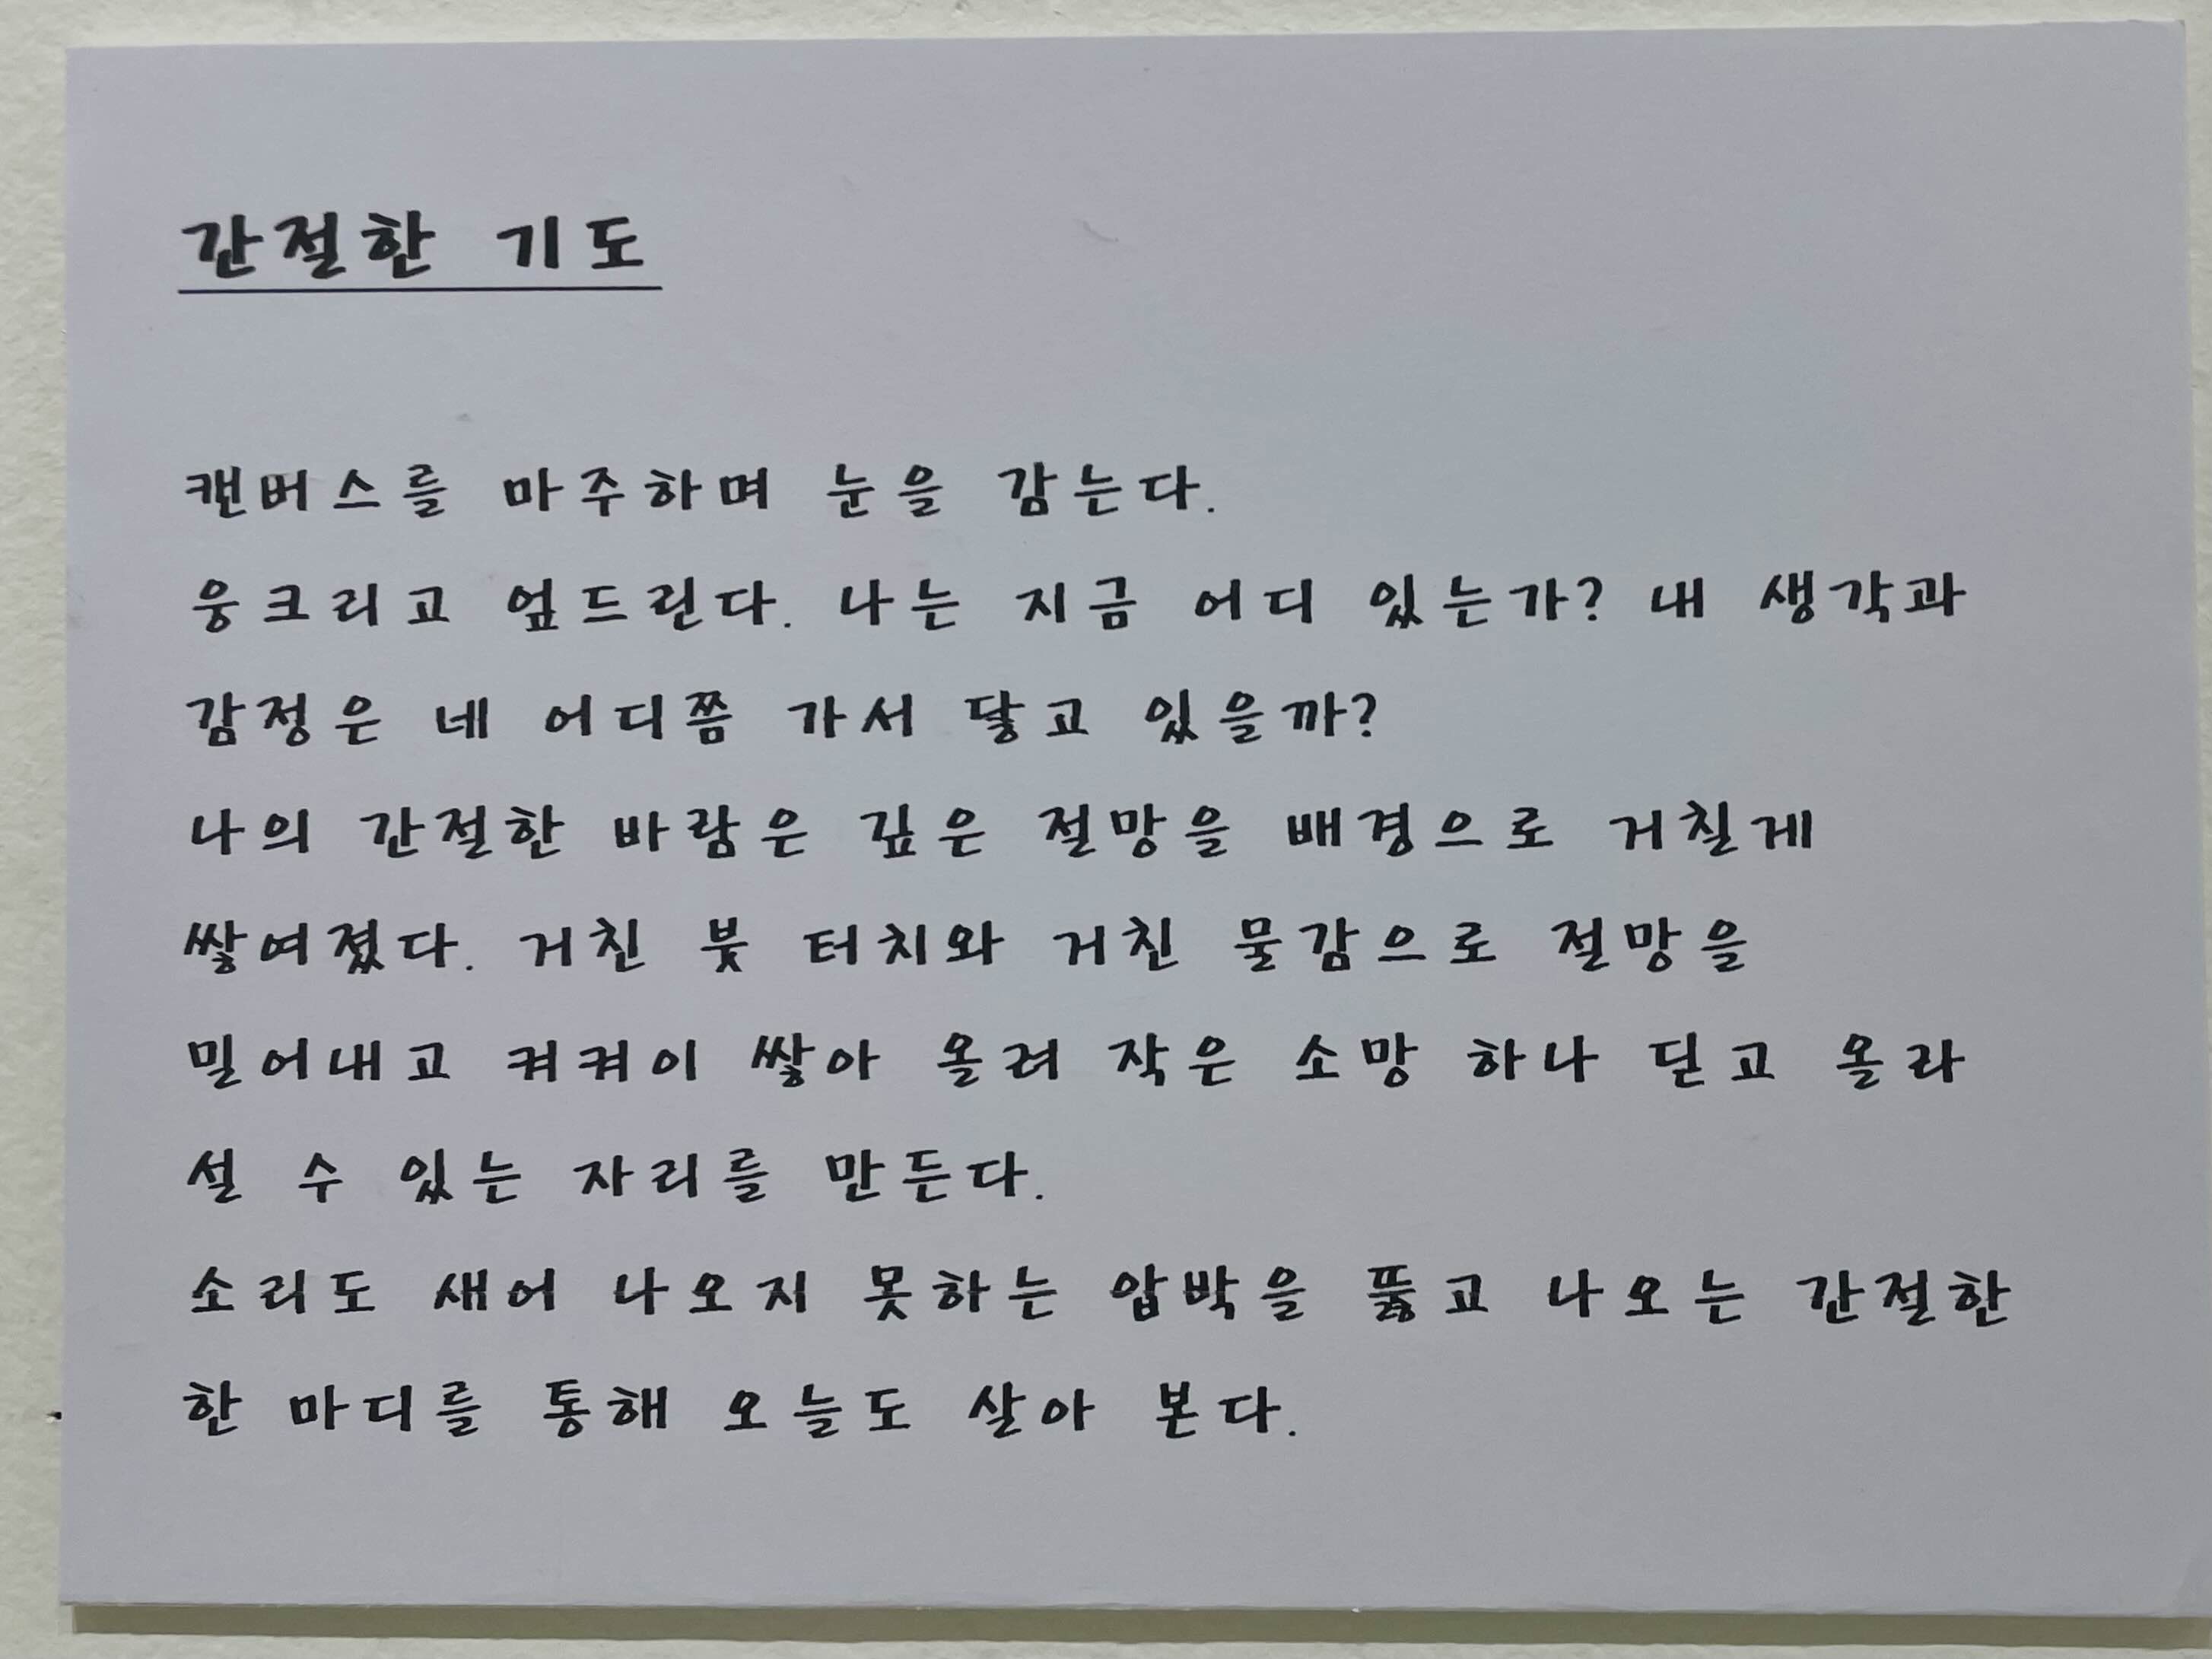 간절한 기도
캔버스를 마주하며 눈을 감는다.
웅크리고 엎드린다. 나는 지금 어디 있는가? 내 생각과
감정은 네 어디쯤 가서 닿고 있을까?
나의 간절한 바람은 깊은 절망을 배경으로 거칠게
쌓여졌다. 거친 붓 터치와 거친 물감으로 절망을
밀어내고 켜켜이 쌓아 올려 작은 소망 하나 딛고 올라
설 수 있는 자리를 만든다.
소리도 새어 나오지 못하는 압박을 뚫고 나오는 간절한
한 마디를 통해 오늘도 살아 본다.